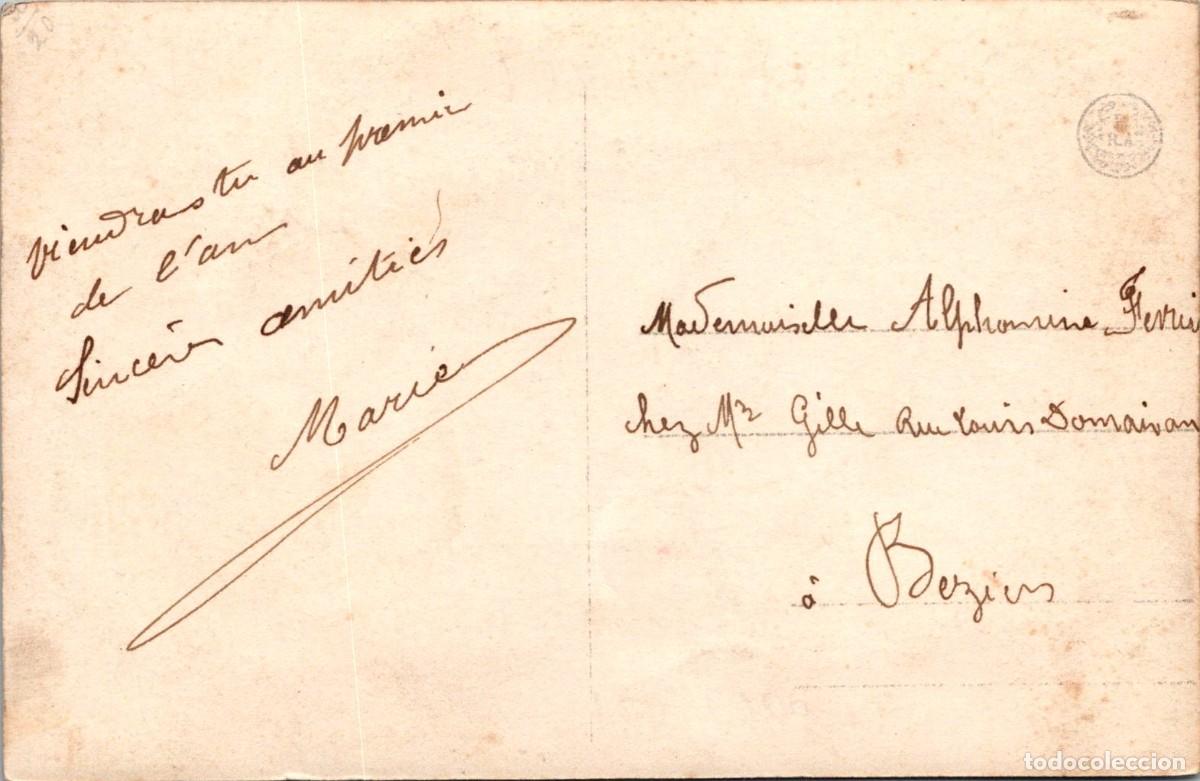 20
viendras tu au premier
de l'an
Sincères amitiés
Marie
Mademoiselle Alphonsine
chez Mr Gille Rue Louis
à Beziers
todocoleccion